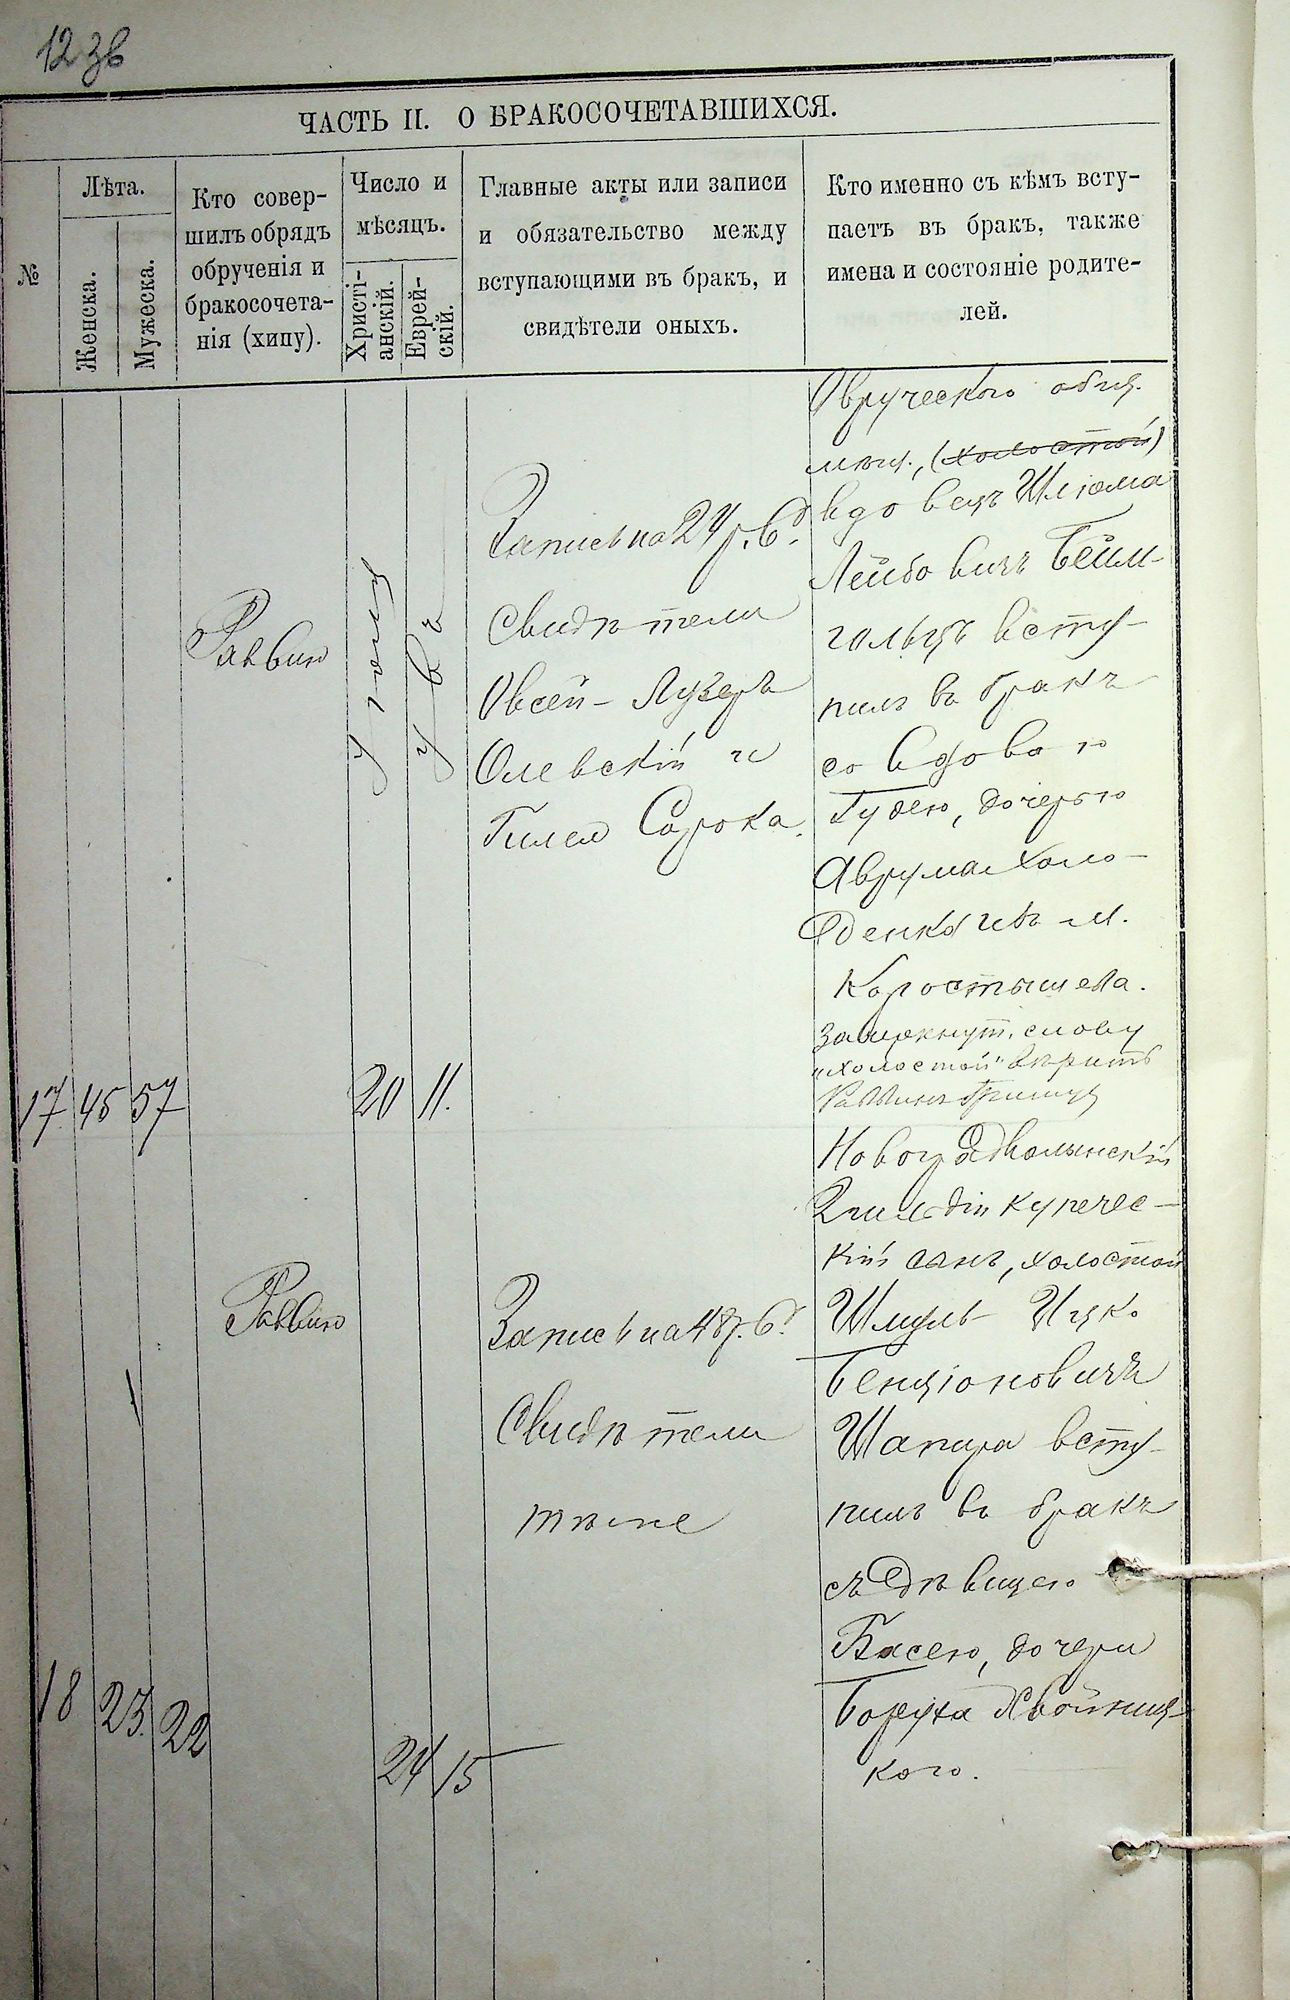 12 зв
ЧАСТЬ II. О БРАКОСОЧЕТАВШИХСЯ.
№
Лѣта.
Женска.
Мужеска.
Кто совер-
шилъ обрядъ
обрученія и
бракосочета-
нія (хипу).
Число и
мѣсяцъ.
Христі-
анскій.
Еврей-
скій.
Главные акты или записи
и обязательство между
вступающими въ бракъ, и
свидѣтели оныхъ.
Кто именно съ кѣмъ всту-
паетъ въ бракъ, также
имена и состояніе родите-
лей.
17 45 57
Раввин
20 11.
Запись на 24 р.
Свидѣтели
Овсей-Лузеръ
Олевскій и
Гилел Сорока.
Овручского общ.
мѣщ., (холостой)
вдовецъ Шлiома
Лейбовичъ Бейм-
гольцъ всту-
пилъ въ бракъ
со вдовою
Гудею, дочерью
Аврума Холо-
денко изъ м.
Коростышева.
Зачеркнут. слову
"холостой" вѣрить
Раввинъ
18 23. 22
Раввин
24 15
Запись на 48 р.
Свидѣтели
тѣ же
Новоградволынскій
2 гильдіи купечес-
кій сынъ, холостой
Шмуль Ицко
Бенціоновичъ
Шапиро всту-
пилъ въ бракъ
съ дѣвицею
Басею, дочери
Боруха Хвойниц-
кого.